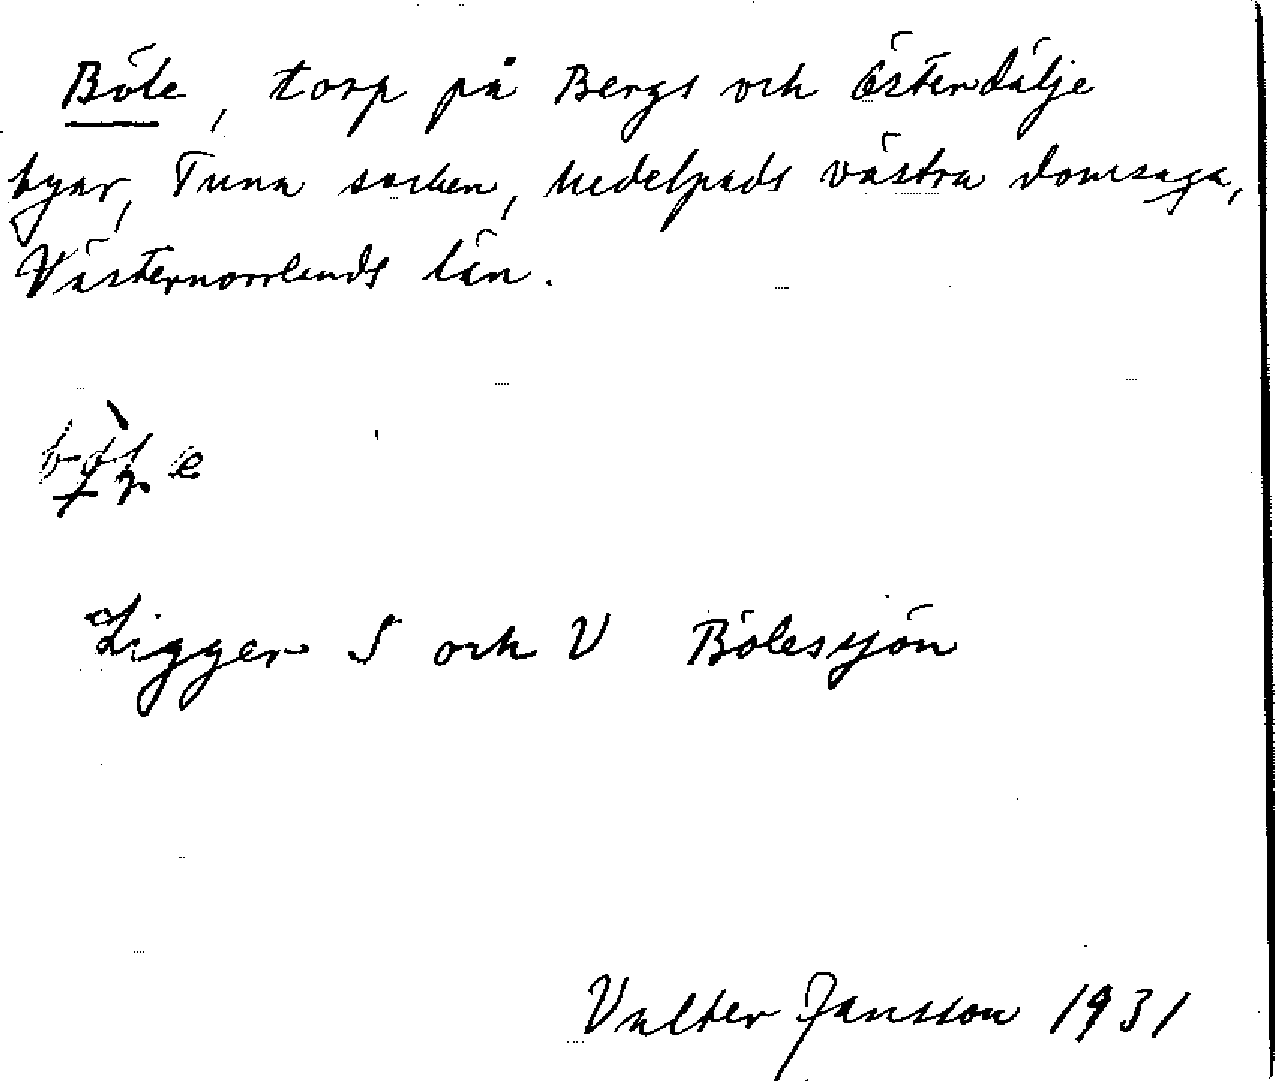 Böle, torp på Bergs och Österdälje
byar, Tuna socken, Medelpads västra domsaga,
Västernorrlands län.
Ligger S och V Bölessjön
Valter Jansson 1931